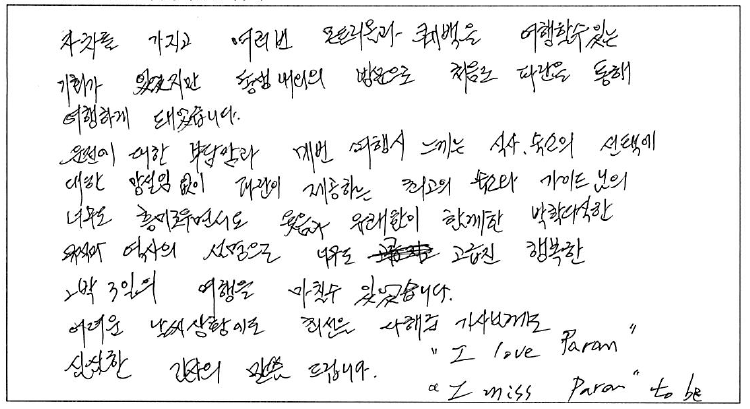 자차를 가지고 여러번 몬트리올과 퀘백을 여행할수있는
기회가 있었지만 동생 내외의 방문으로 처음으로 파란을 통해
여행하게 돼었습니다.
운전에 대한 부담감과 매번 여행시 느끼는 식사, 숙소의 선택에
대한 망설임 없이 파란이 제공하는 최고의 숙소와 가이드 님의
너무도 흥미로우면서도 웃음과 유쾌함이 함께한 박학다식한
역사의 설명으로 너무도 고급진 행복한
2박 3일의 여행을 마칠수 있었습니다.
어려운 날씨상황에도 최선을 다해준 기사님께도
심심한 감사의 말씀 드립니다. "I love Paran"
"I miss Paran" to be